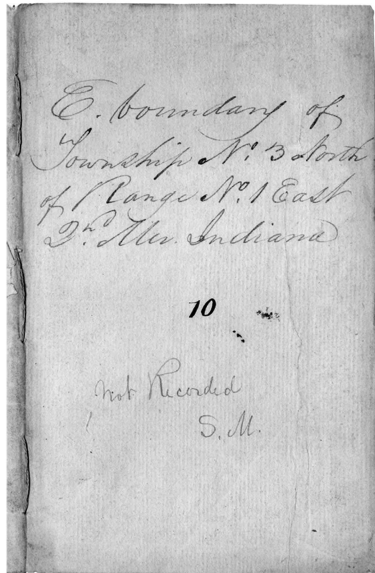 E. boundary of
Township No. 3 North
of Range No. 1 East
2nd Mer. Indiana
10
not Recorded
S. M.